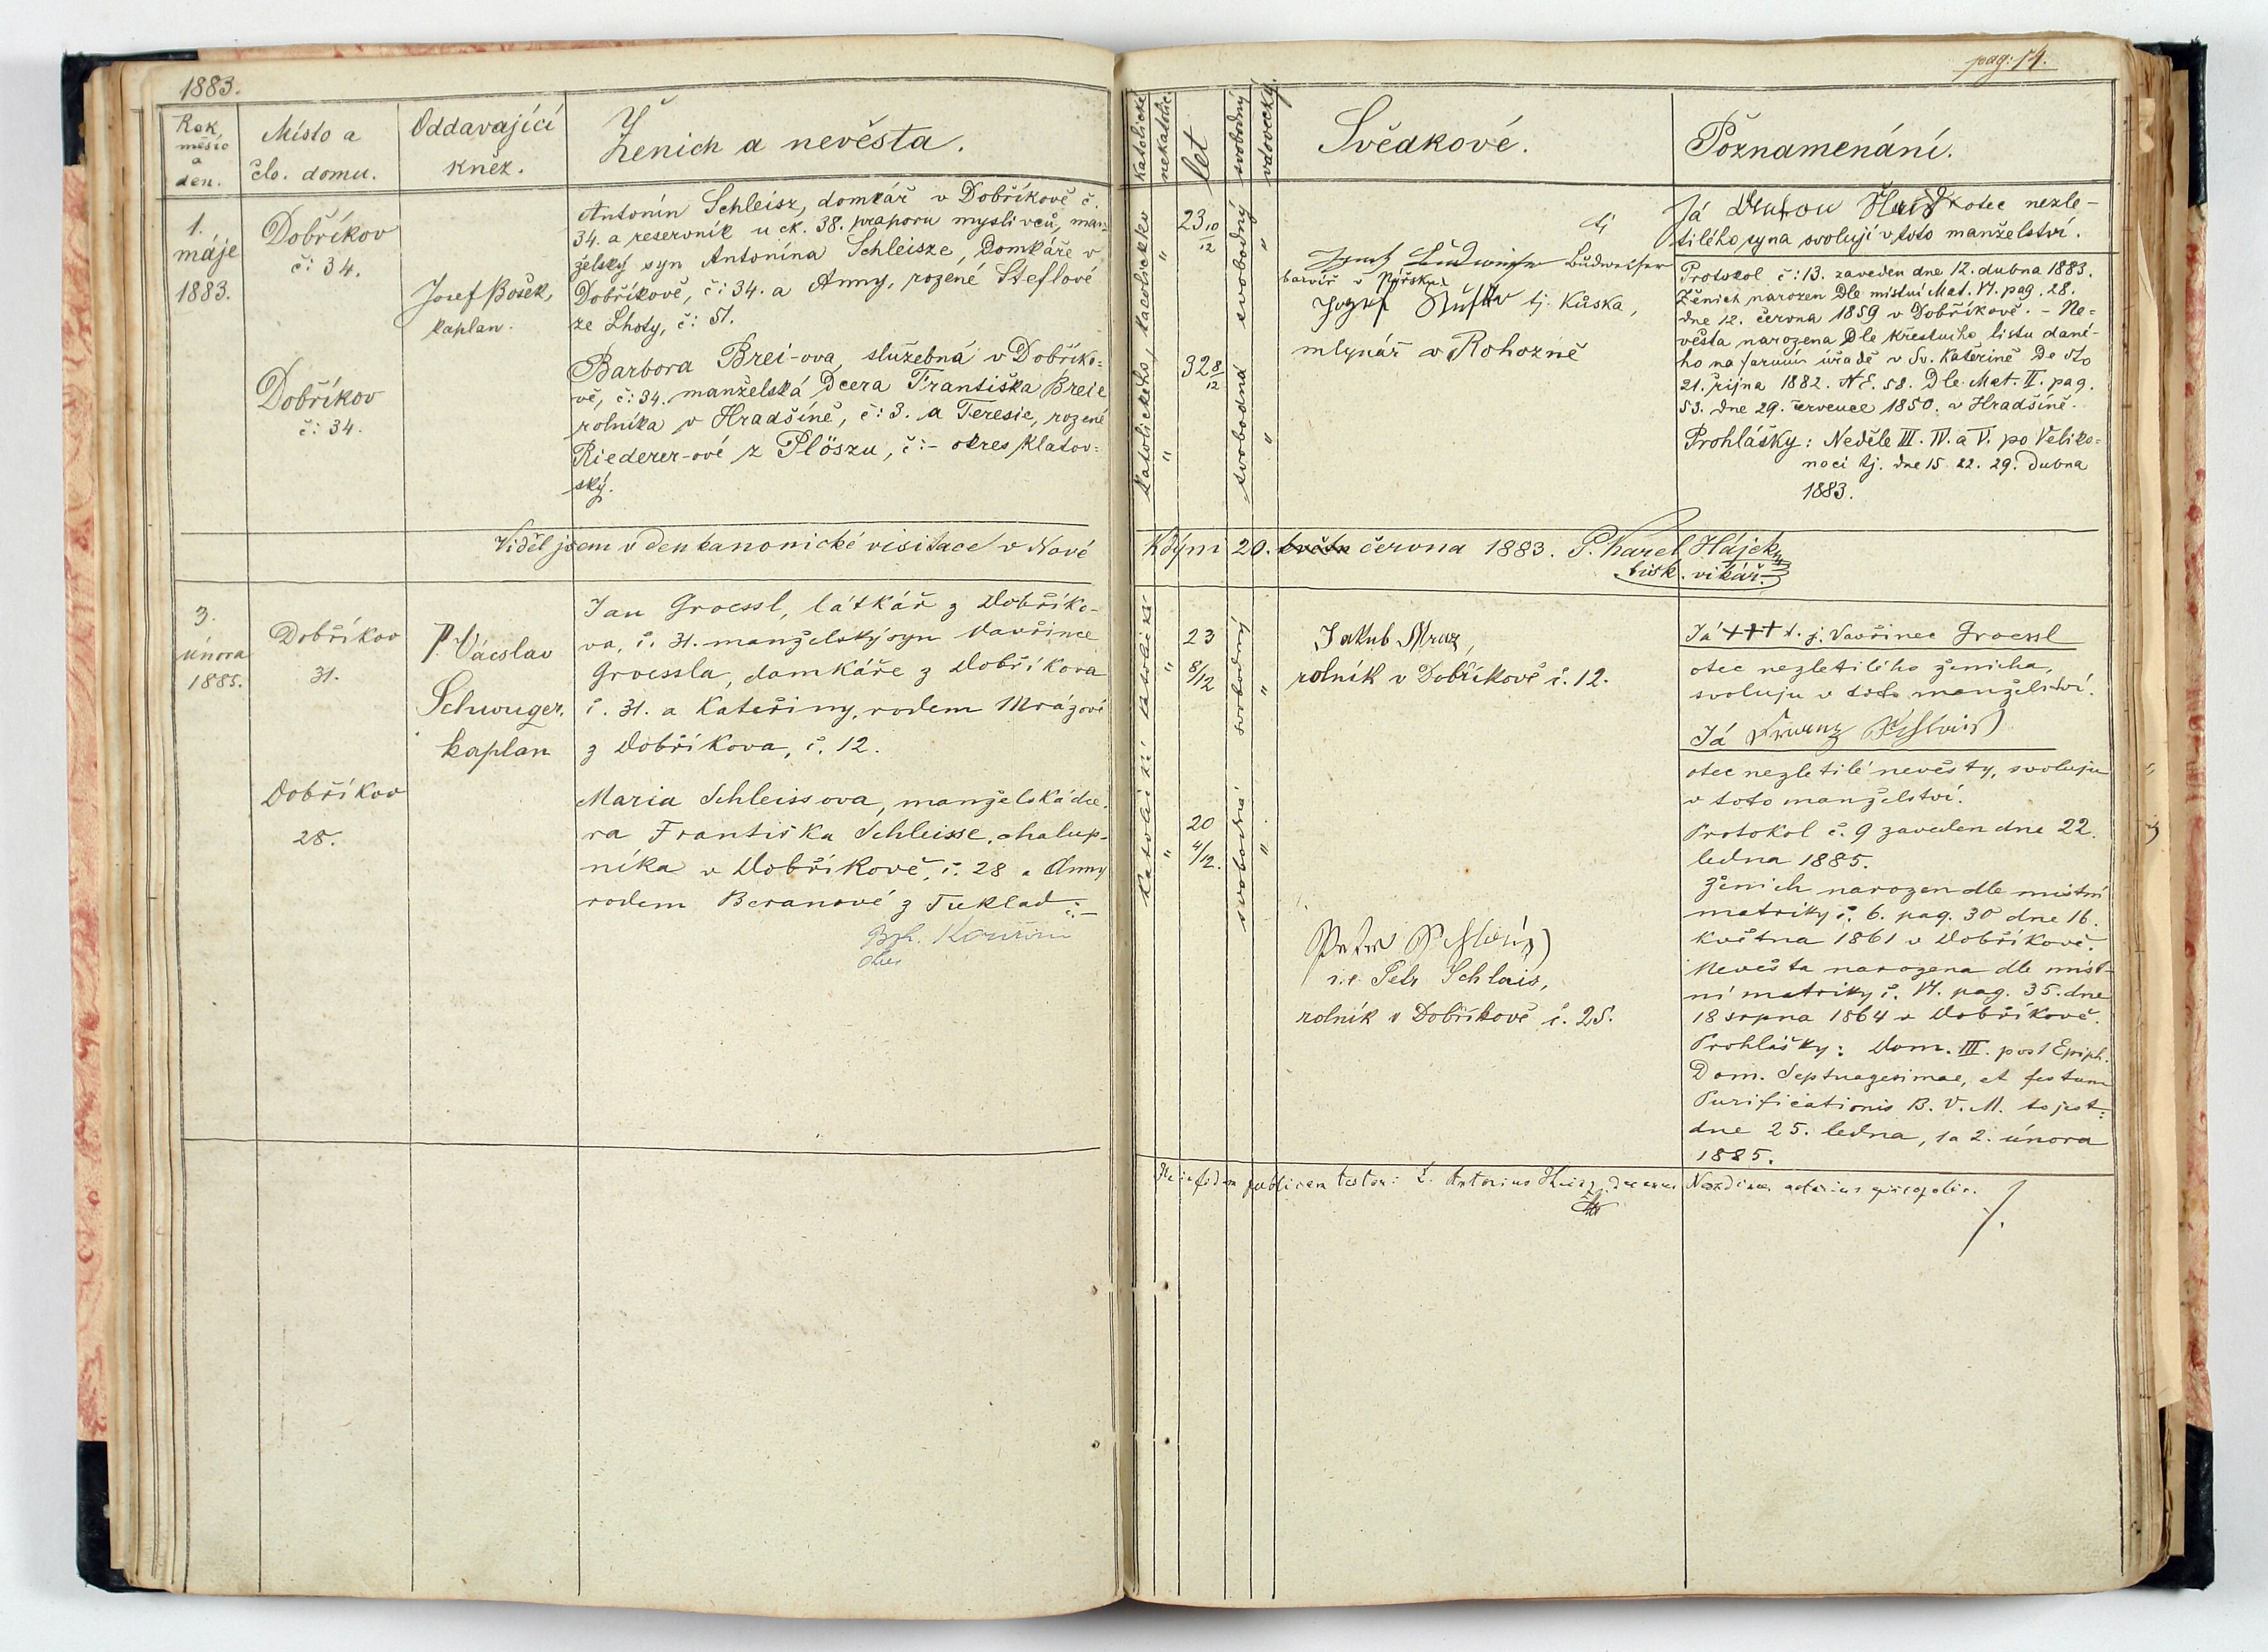 1883.
Rok, měsíc a den.
Místo a člo. domu.
Oddavající kněz.
Ženich a nevěsta.
1.
máje
1883.
Dobříkov
č: 34.
Josef Bošek,
kaplan.
Antonín Schleisz, domkář v Dobříkově č.
34. a reservník u ck. 38. praporu myslivců, man-
želský syn Antonína Schleisze, Domkáře v
Dobříkově, č: 34. a Anny, rozené Steflové
ze Lhoty, č: 51.
Dobříkov
č: 34.
Barbora Brei-ova, služebná v Dobříko-
vě, č: 34. manželská Dcera Františka Breie
rolníka v Hradšíně, č: 3. a Teresie, rozené
Riederer-ové z Plöszu, č:- okres Klatov-
ský.
Viděl jsem v den kanonické visitace v Nové
3.
února
1885.
Dobříkov
31.
P Václav
Schwuger,
kaplan
Jan Groessl, látkář z Dobříko-
va, č. 31. manželský syn Vavřince
Groessla, domkáře z Dobříkova
č. 31. a Kateřiny, rodem Mrázové
z Dobříkova, č. 12.
Dobříkov
28.
Maria Schleissova, manželská dce-
ra Františka Schleisse, chalup-
níka v Dobříkově, č. 28 a Anny
rodem Beranové z Tuklad č:-
pag: 14.
katolické
nekatolic.
let
svobodný
vdovecký.
Svědkové.
Poznamenání.
katolického
"
23 10/12
svobodný
"
tj
Budweiser
barvíř v Nýrsku
tj. Kůska,
mlynář v Rohozně
katolického
"
32 8/12
svobodná
"
Já
otec nezle-
tilého syna svolují v toto manželství.
Protokol č: 13. zaveden dne 12. dubna 1883.
Ženich narozen Dle místní Mat. VI. pag. 28.
dne 12. června 1859 v Dobříkově. - Ne-
věsta narozena Dle křestního listu dané-
ho na farním úřadě v Sv. Kateřině De dto
21. října 1882. N.E. 58. Dle Mat. II. pag.
53. dne 29. července 1850. v Hradšíně.
Prohlášky: Neděle III. IV. a V. po Veliko-
noci tj. dne 15. 22. 29. dubna
1883.
Kdyni 20. června 1883. P. Karel Hájek
bisk. vikář.
katolické
"
23
8/12
svobodný
"
Jakub Mraz,
rolník v Dobříkově č. 12.
katolické
"
20
4/12.
svobodná
"
i.e. Petr Schlais,
rolník v Dobříkově č. 25.
Já +++ t. j. Vavřinec Groessl
otec nezletilého ženicha,
svoluju v toto manželství.
Já Franz Schleis
otec nezletilé nevěsty, svoluju
v toto manželství.
Protokol č. 9 zaveden dne 22.
ledna 1885.
Ženich narozen dle místní
matriky č. 6. pag. 30 dne 16.
května 1861 v Dobříkově.
Nevěsta narozena dle míst-
ní matriky č. VI. pag. 35. dne
18 srpna 1864 v Dobříkově.
Prohlášky: Dom. III. post Epiph.
Dom. Septuagesimae, et festum
Purificationis B. V. M. to jest:
dne 25. ledna, 1 a 2. února
1885.
publicam testor: Antonius